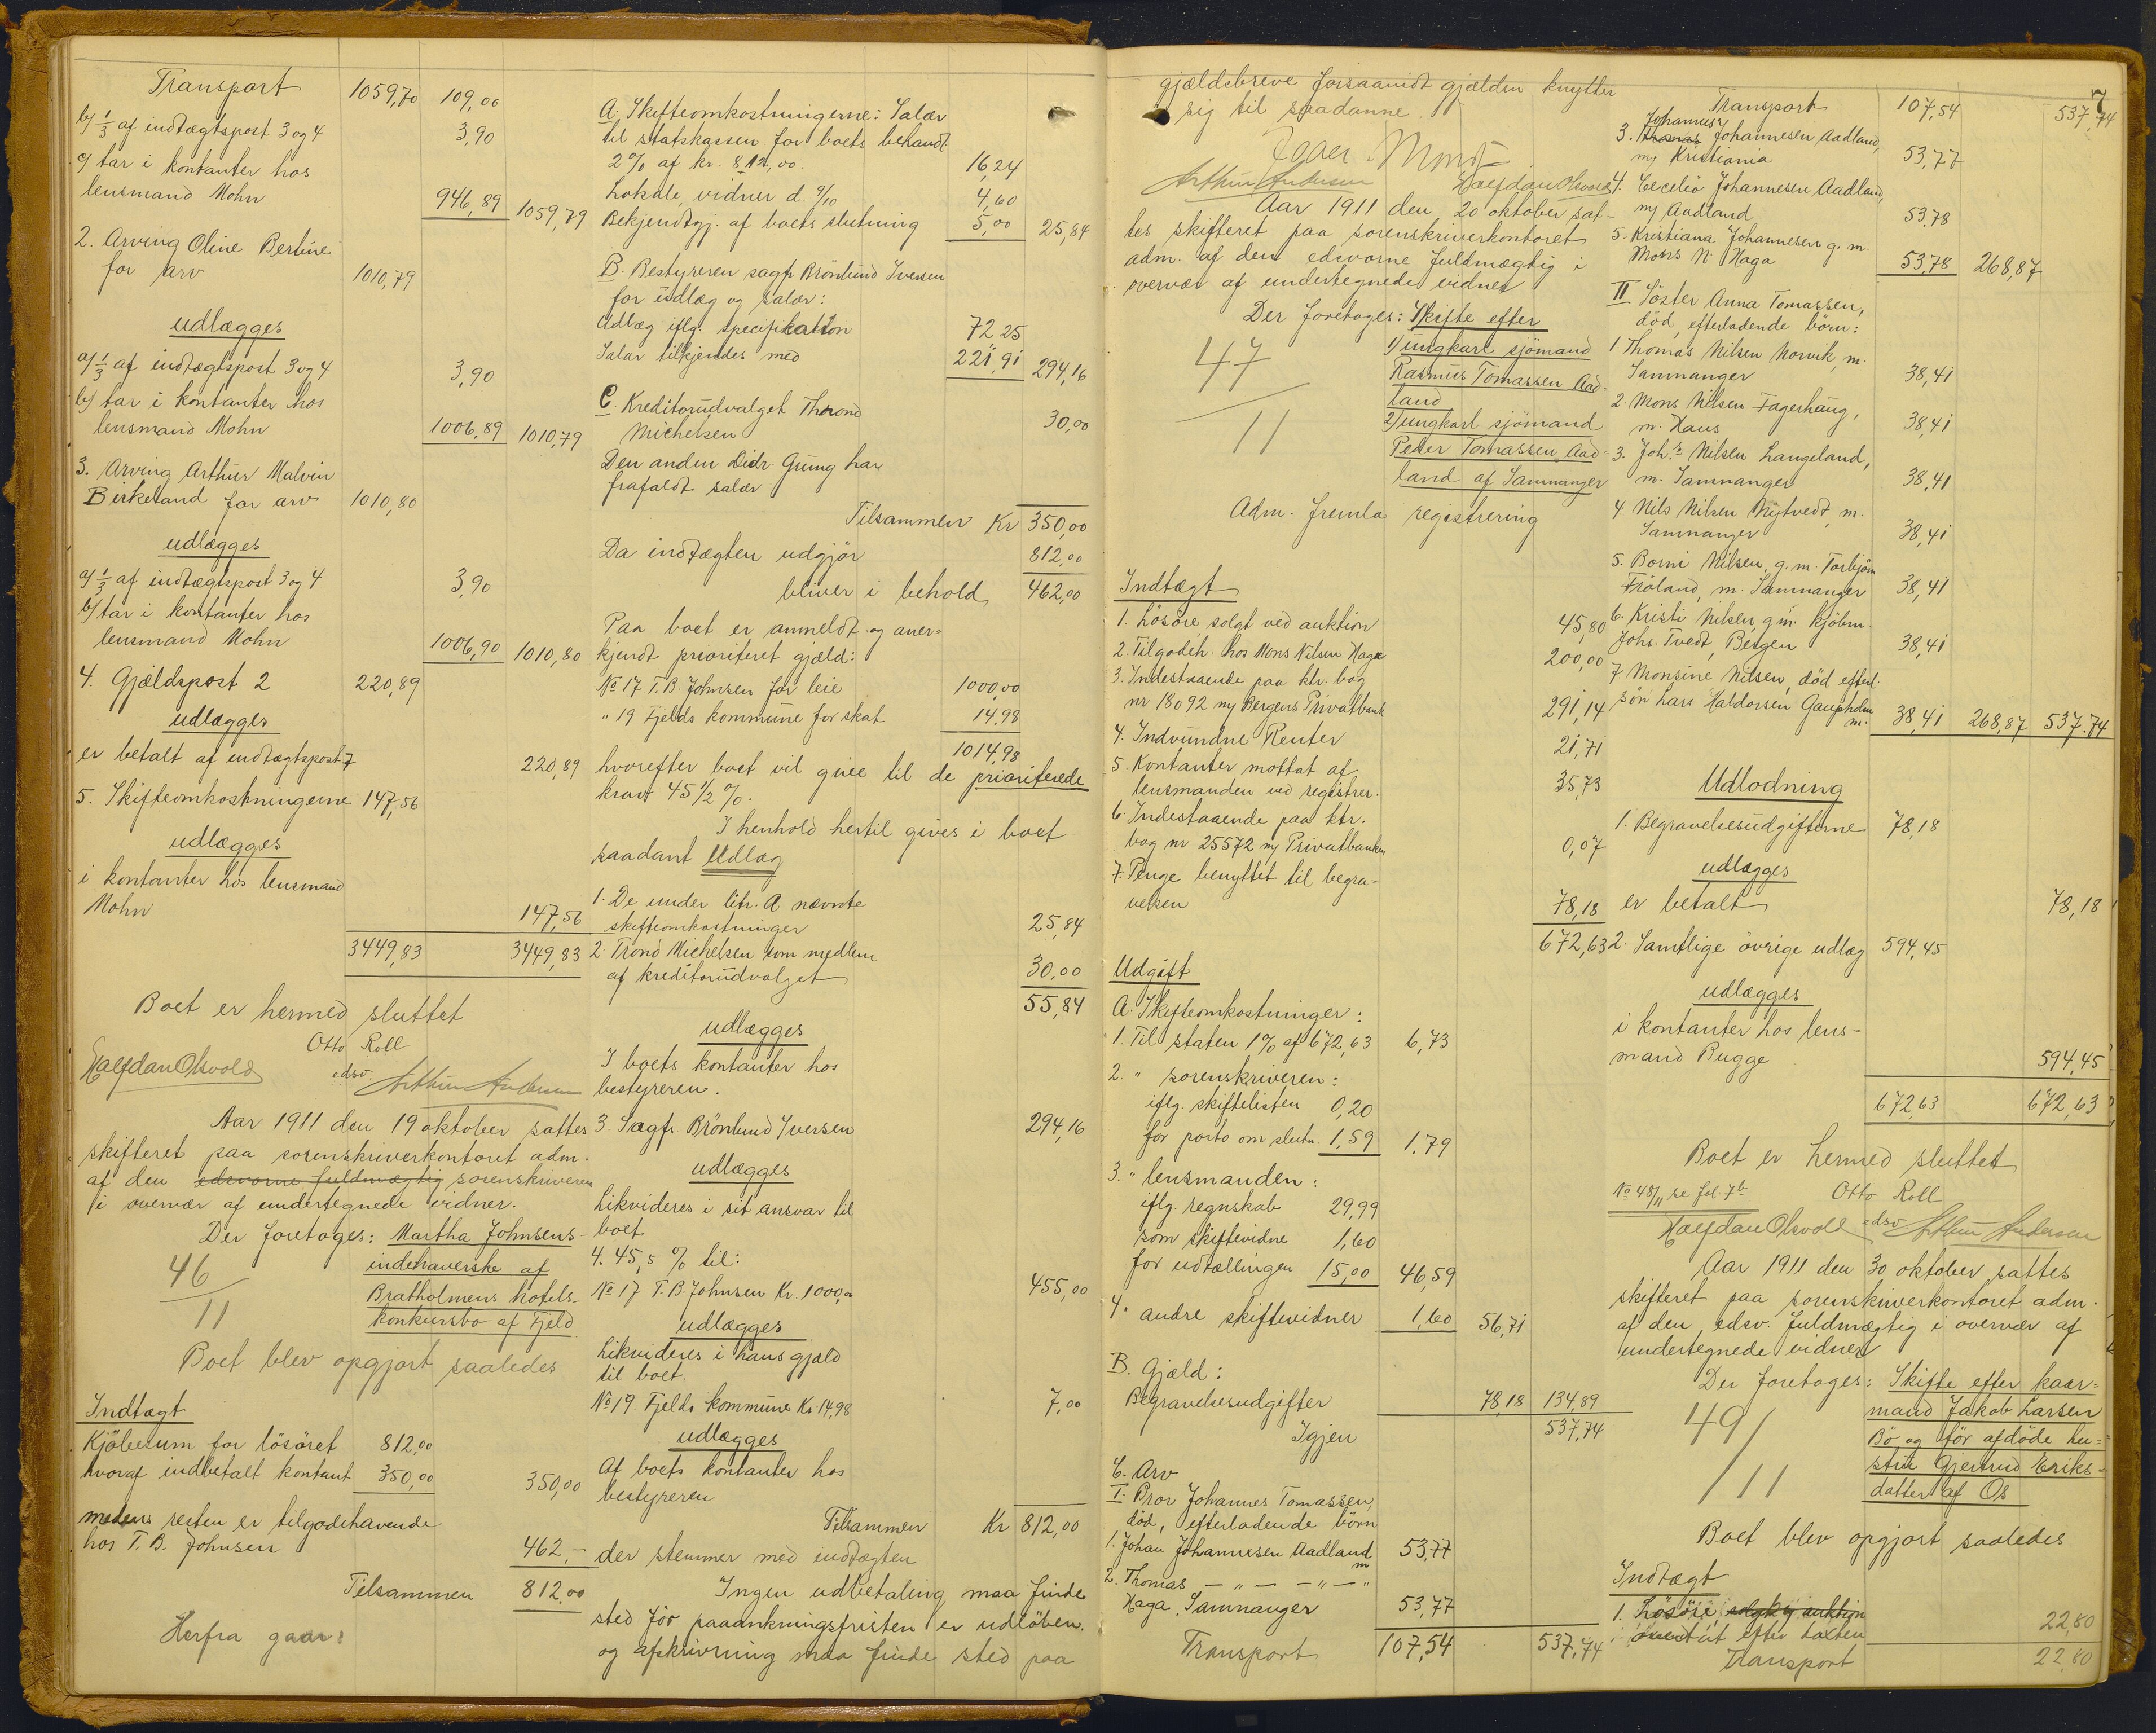 Transport 1059,70 109,00
b/ 1/3 af indtægtspost 3 og 4 3,90
c/ tar i kontanter hos
lensmand Mohn 946,89 1059,79
2. Arving Oline Bertine
for arv 1010,79
udlægges
a/ 1/3 af indtægtspost 3 og 4 3,90
b/ tar i kontanter hos
lensmand Mohn 1006,89 1010,79
3. Arving Arthur Malvin
Birkeland for arv 1010,80
udlægges
a/ 1/3 af indtægtspost 3 og 4 3,90
b/ tar i kontanter hos
lensmand Mohn 1006,90 1010,80
4. Gjældspost 2 220,89
udlægges
er betalt af indtægtspost 7 220,89
5. Skifteomkostningerne 147,56
udlægges
i kontanter hos lensmand
Mohn 147,56
3449,83 3449,83
Boet er hermed sluttet
Otto Roll
edsv.
Halfdan Olsvold Arthur Andersen
Aar 1911 den 19 oktober sattes
skifteret paa sorenskriverkontoret adm.
af den edsvorne fuldmægtig sorenskriveren
i overvær af undertegnede vidner.
Der foretoges: Martha Johnsens
46/11 indehaverske af
Bratholmens hotels
konkursbo af Fjeld
Boet blev opgjort saaledes
Indtægt
Kjøbesum for løsøret 812,00
hvoraf indbetalt kontant 350,00 350,00
medens resten er tilgodehavende
hos T. B. Johnsen 462,-
Tilsammen 812,00
Herfra gaar:
A. Skifteomkostningerne: Salær
til statskassen for boets behandl.
2% af kr. 812,00. 16,24
Lokale, vidner d. 9/10 4,60
Bekjendtgj. af boets slutning 5,00 25,84
B. Bestyreren sagf. Brönlund Iversen
for udlæg og salær:
Udlæg iflg. specifikation 72,25
Salær tilkjendes med 221,91 294,16
C Kreditorudvalget Thrond
Michelsen 30,00
Den anden Didr. Gung har
frafaldt salær
Tilsammen Kr 350,00
Da indtægten udgjør 812,00
bliver i behold 462,00
Paa boet er anmeldt og aner-
kjendt prioriteret gjæld:
No 17 T. B. Johnsen for leie 1000,00
" 19 Fjelds kommune for skat 14,98
1014,98
hvorefter boet vil give til de prioriterede
krav 45 1/2 %.
I henhold hertil gives i boet
saadant Udlæg
1. De under litr. A nævnte
skifteomkostninger 25,84
2. Trond Michelsen som medlem
af kreditorudvalget 30,00
55,84
udlægges
I boets kontanter hos
bestyreren.
3. Sagf. Brönlund Iversen 294,16
udlægges
Likvideres i sit ansvar til
boet
4. 45,5 % til:
No 17 T. B. Johnsen Kr. 1000,00 455,00
udlægges
Likvideres i hans gjæld
til boet.
No 19 Fjelds kommune Kr. 14,98 7,00
udlægges
Af boets kontanter hos
bestyreren
Tilsammen Kr 812,00
der stemmer med indtægten
Ingen udbetaling maa finde
sted før paaankningsfristen er udløben.
og afskrivning maa finde sted paa
7
gjældsbreve forsaavidt gjælden knytter
sig til saadanne.
Arthur Andersen Halfdan Olsvold
Aar 1911 den 20 oktober sat-
tes skifteret paa sorenskriverkontoret
adm. af den edsvorne fuldmægtig i
overvær af undertegnede vidner
Der foretoges: Skifte efter
47/11 1) ungkarl sjömand
Rasmus Tomassen Aad-
land
2) ungkarl sjömand
Peder Tomassen Aad-
land af Samnanger
Adm. fremla registrering
Indtægt
1. Løsøre solgt ved auktion 45,80
2. Tilgodeh. hos Mons Nilsen Haga 200,00
3. Indestaaende paa ktr. bog
nr 18092 m/ Bergens Privatbank 291,14
4. Indvundne Renter 21,71
5. Kontanter mottat af
lensmanden ved registrer. 35,73
6. Indestaaende paa ktr.
bog nr 25572 m/ Privatbanken 0,07
7. Penge benyttet til begra-
velsen 78,18
672,63
Udgift
A. Skifteomkostninger:
1. Til staten 1% af 672,63 6,73
2. " sorenskriveren:
iflg. skiftelisten 0,20
for porto om slutn. 1,59 1,79
3. " lensmanden:
iflg. regnskab 29,99
som skiftevidne 1,60
for udtællingen 15,00 46,59
4. " andre skiftevidner 1,60 56,71
B. Gjæld:
Begravelsesudgifter 78,18 134,89
Igjen 537,74
C. Arv
I. Bror Johannes Tomassen,
død, efterladende børn
1. Johan Johannesen Aadland 53,77
2. Thomas — " — — " — m
Haga, Samnanger 53,77
Transport 107,54 537,74
Transport 107,54 537,74
Johannes
3. Thomas Johannesen Aadland,
m/ Kristiania 53,77
4. Cecelie Johannesen Aadland,
m/ Aadland 53,78
5. Kristiana Johannesen g. m.
Mons N. Haga 53,78 268,87
II Söster Anna Tomassen,
död, efterladende börn:
1. Thomas Nilsen Norvik, m.
Samnanger 38,41
2. Mons Nilsen Fagerhaug,
m. Haus 38,41
3. Johs Nilsen Langeland,
m. Samnanger 38,41
4. Nils Nilsen Nytvedt, m.
Samnanger 38,41
5. Borni Nilsen, g. m. Torbjörn
Fröland, m. Samnanger 38,41
6. Kristi Nilsen g. m. kjöbm.
Johs. Tvedt, Bergen 38,41
7. Monsine Nilsen, död efterl.
sön Lars Haldorsen Gaupholm
m. 38,41 268,87 537,74
Udlodning
1. Begravelsesudgifterne 78,18
udlægges
er betalt 78,18
2. Samtlige övrige udlæg 594,45
udlægges
i kontanter hos lens-
mand Bugge 594,45
672,63 672,63
Boet er hermed sluttet
No 48/11 se fol. 7b Otto Roll
edsv
Halfdan Olsvold Arthur Andersen
Aar 1911 den 30 oktober sattes
skifteret paa sorenskriverkontoret adm.
af den edsv. fuldmægtig i overvær af
undertegnede vidner
Der foretoges: Skifte efter kaar-
49/11 mand Jakob Larsen
Bö og för afdöde hu-
stru Gjertrud Eriks-
datter af Os
Boet blev opgjort saaledes
Indtægt
1. Løsøre auktion
efter taxten 22,80
Transport 22,80